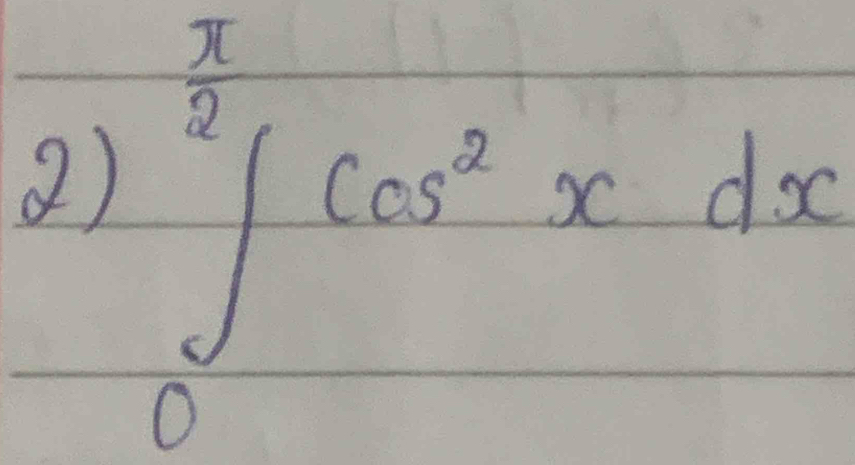 2) ∫₀^{π/2} cos² x dx